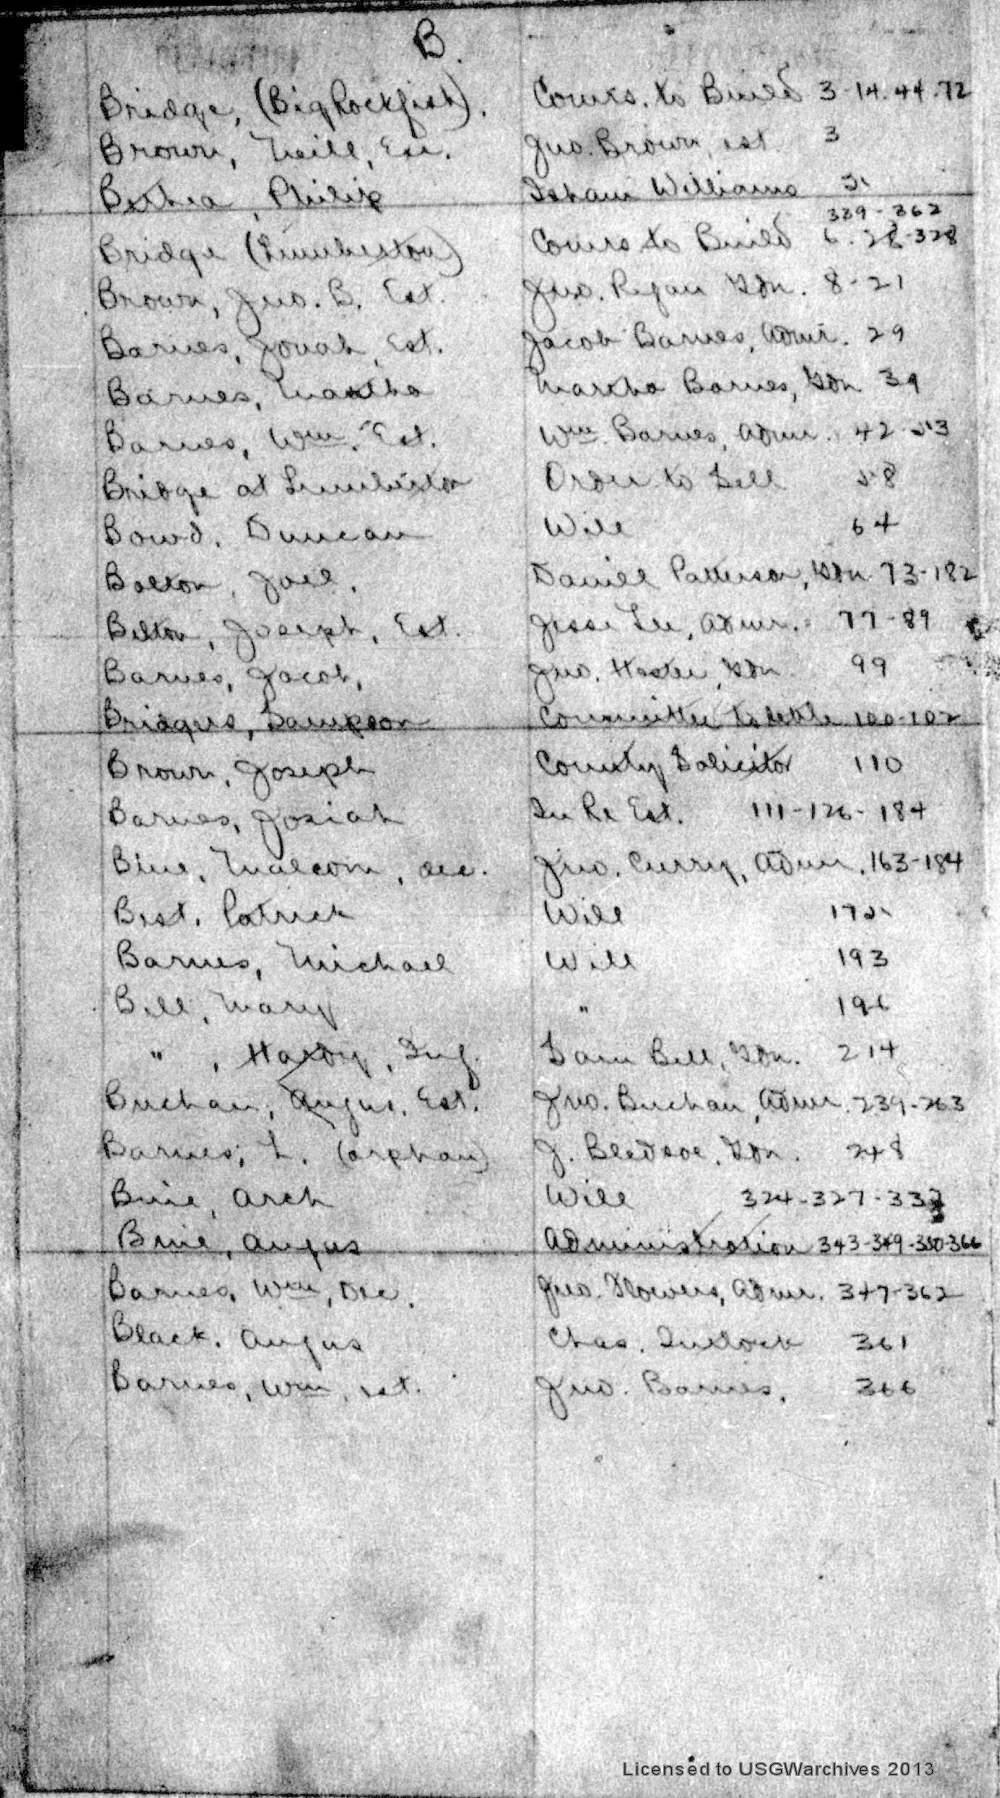 B.
Bridge, (Big Rockfish). Comrs. to Build 3-14.44.72
Brown, Neill, Exe. Jno. Brown, est 3
Bethea, Philip Isham Williams 5
339-362
Bridge (Lumberton) Comrs to Build 6-28-328
Brown, Jno. B. Est. Jno. Regan Gdn. 8-21
Barnes, Jonah, Est. Jacob Barnes, Admr. 29
Barnes, Martha Martha Barnes, Gdn 39
Barnes, Wm. Est. Wm. Barnes, Admr. 42-53
Bridge at Lumberton Order to Sell 58
Bowd, Duncan Will 64
Bolton, Joel, Daniel Patterson, Gdn 73-182
Belton, Joseph, Est. Jesse Lee, Admr. 77-89
Barnes, Jacob, Jno. Hester, Gdn 99
Bridgers, Sampson Committee to settle 100-102
Brown, Joseph County Solicitor 110
Barnes, Josiah In Re Est. 111-126-184
Blue, Malcom, dec. Jno. Curry, Admr. 163-184
Best, Patrick Will 175
Barnes, Michael Will 193
Bell, Mary " 196
" , Hardy, Inf. Sam Bell, Gdn. 214
Buchan, Angus, Est. Jno. Buchan, Admr. 239-263
Barnes, L. (orphan) J. Bledsoe, Gdn. 248
Buie, Arch Will 324-327-333
Buie, Angus Administration 343-349-350-366
Barnes, Wm, Dec. Jno. Flowers, Admr. 347-362
Black, Angus Chas. 361
Barnes, Wm, est. Jno. Barnes, 366
Licensed to USGWarchives 2013